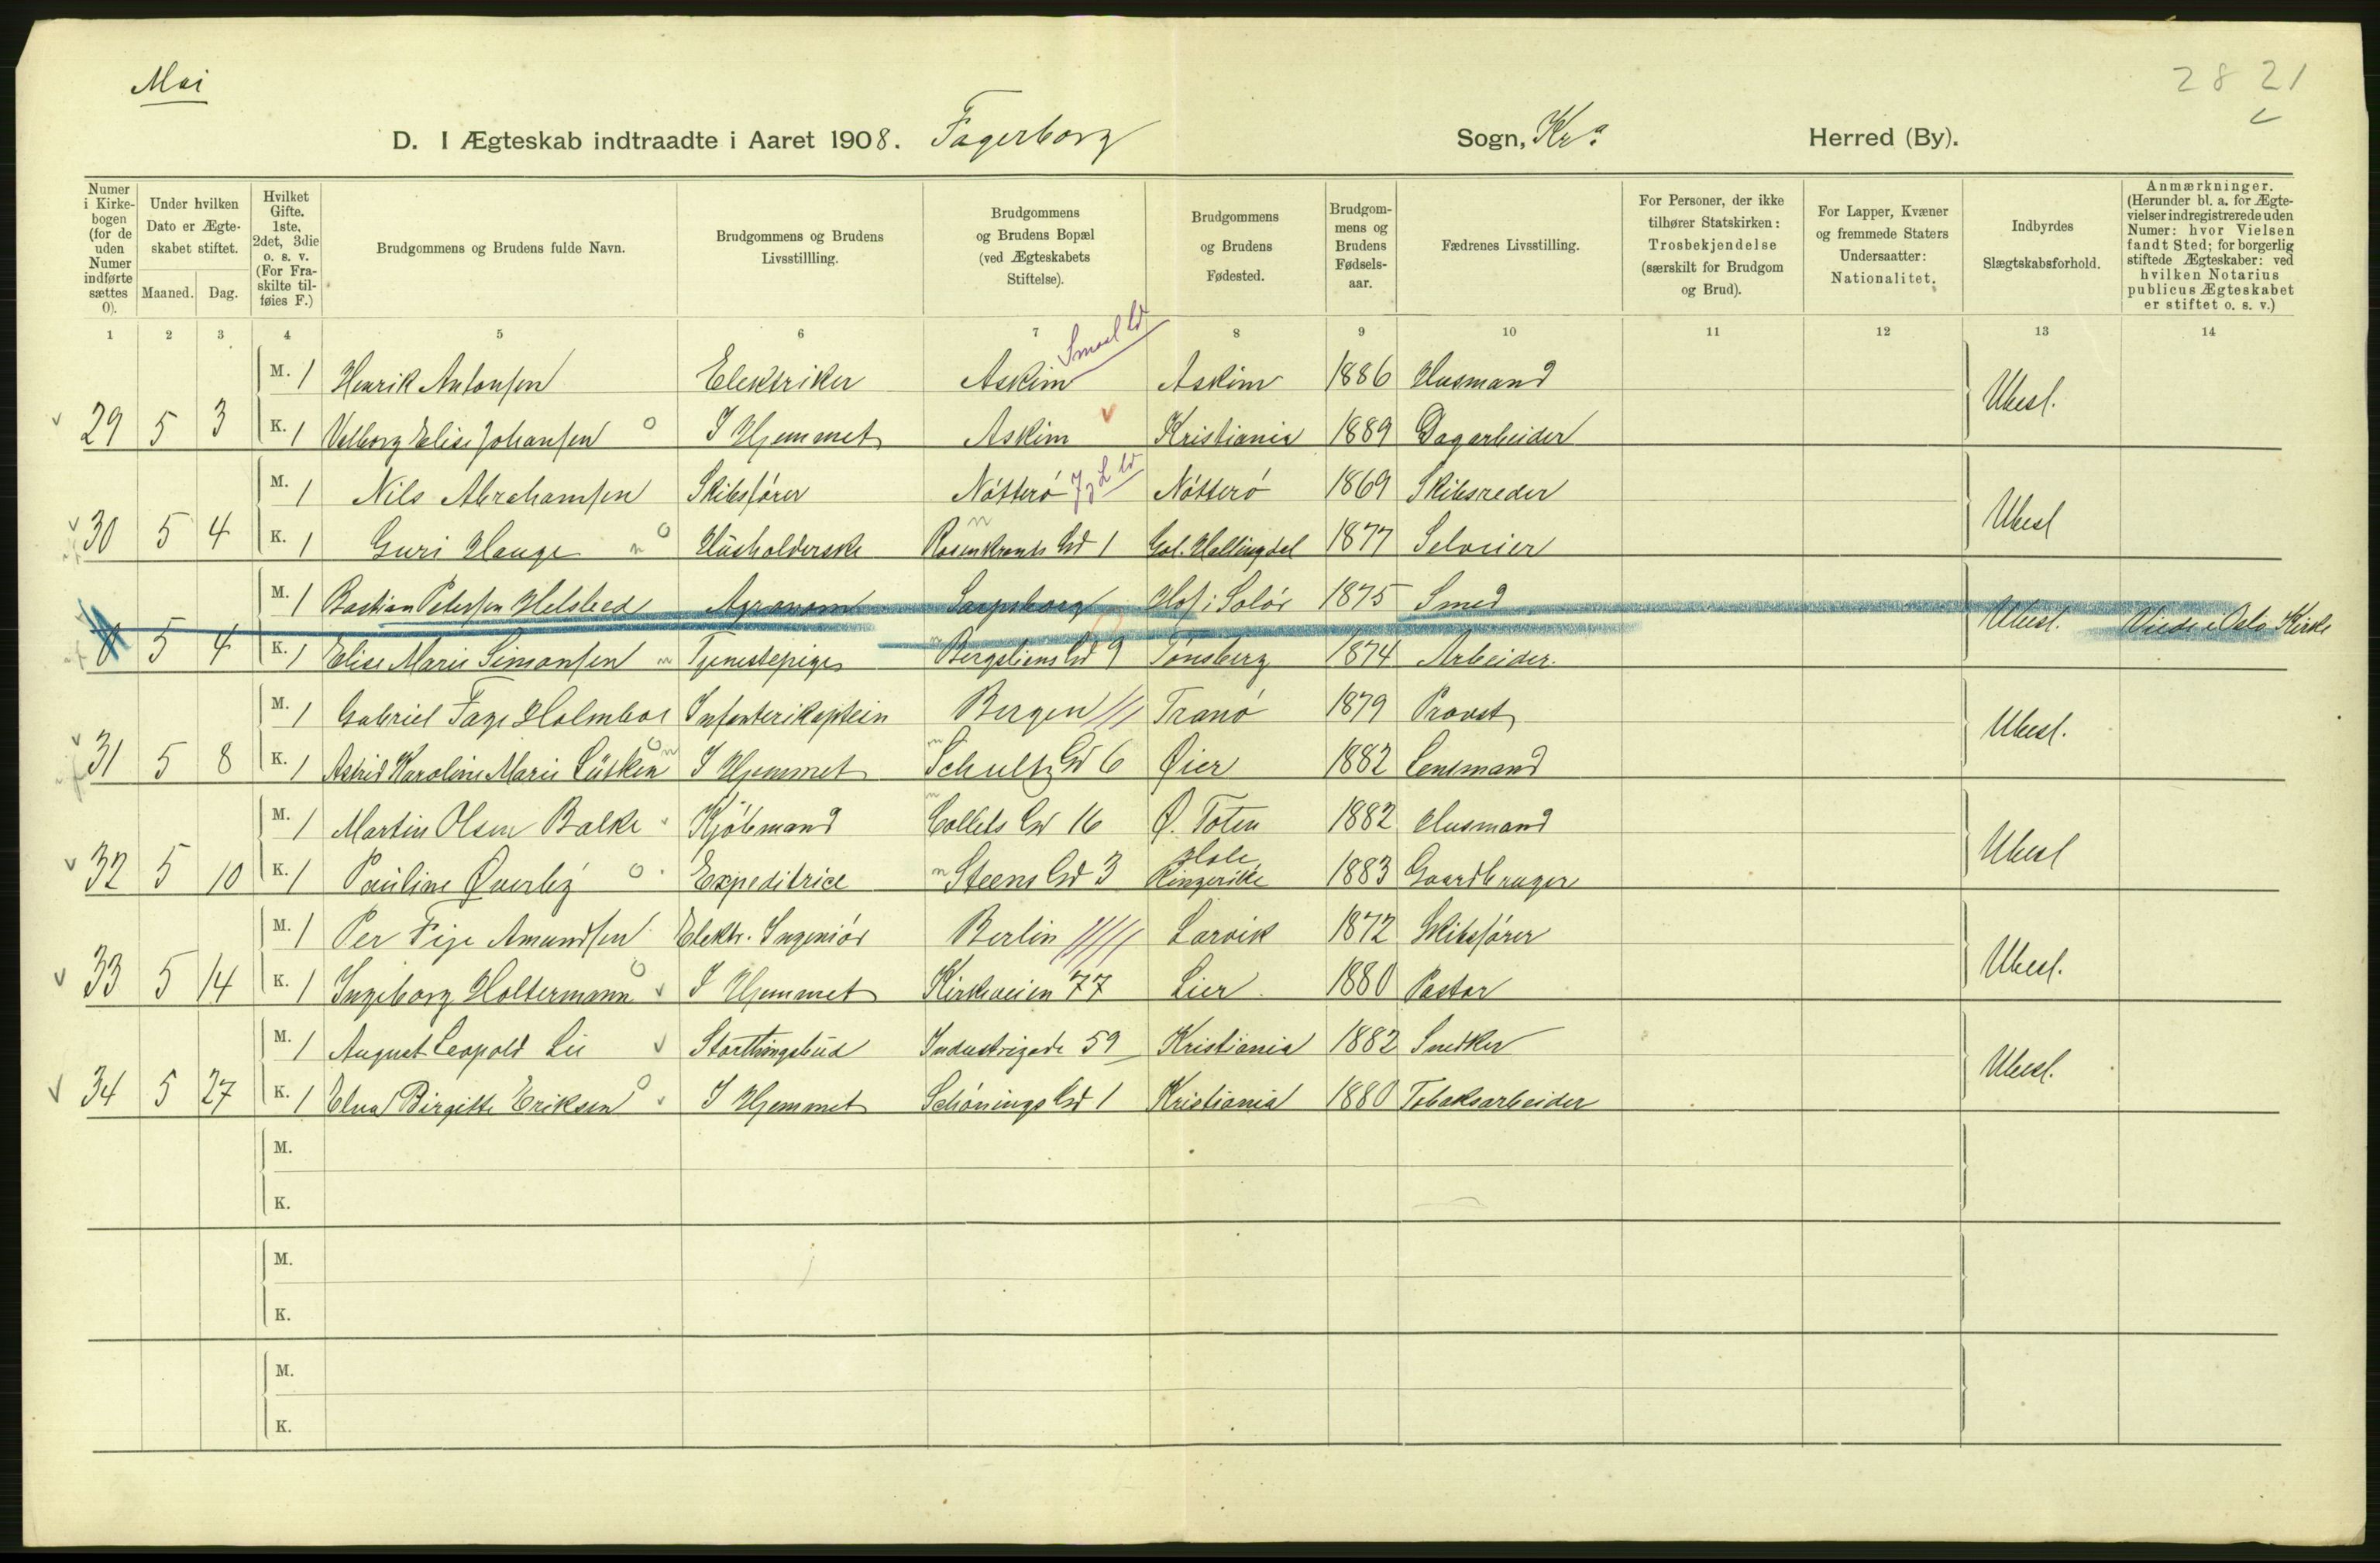 Mai
28 21
D. I Ægteskab indtraadte i Aaret 1908. Fagerborg Sogn, Kr.a Herred (By).
Numer i Kirke-bogen (for de uden Numer indførte sættes 0).
Under hvilken Dato er Ægte-skabet stiftet.
Maaned. Dag.
Hvilket Gifte. 1ste, 2det, 3die o. s. v. (For Fra-skilte til-føies F.)
Brudgommens og Brudens fulde Navn.
Brudgommens og Brudens Livsstillling.
Brudgommens og Brudens Bopæl (ved Ægteskabets Stiftelse).
Brudgommens og Brudens Fødested.
Brudgom-mens og Brudens Fødsels-aar.
Fædrenes Livsstilling.
For Personer, der ikke tilhører Statskirken: Trosbekjendelse (særskilt for Brudgom og Brud).
For Lapper, Kvæner og fremmede Staters Undersaatter: Nationalitet.
Indbyrdes Slægtskabsforhold.
Anmærkninger. (Herunder bl. a. for Ægte-vielser indregistrerede uden Numer: hvor Vielsen fandt Sted; for borgerlig stiftede Ægteskaber: ved hvilken Notarius publicus Ægteskabet er stiftet o. s. v.)
1 2 3 4 5 6 7 8 9 10 11 12 13 14
M. 1 Henrik Antonsen Elektriker Askim Askim 1886 Husmand
29 5 3 K. 1 Valborg Elise Johansen I Hjemmet Askim Kristiania 1889 Dagarbeider Ubesl.
M. 1 Nils Abrahamsen Skibsfører Nötterö Nötterö 1869 Skibsreder
30 5 4 K. 1 Guri Hauge Husholderske Rosenkrantz Gd 1 Gol. Hallingdal 1877 Selveier Ubesl
M. 1 Bastian Petersen Agronom Sarpsborg Hof i Solör 1875 Smed
0 5 4 K. 1 Elise Marie Simonsen Tjenestepige Bergsliens Gd 9 Tønsberg 1874 Arbeider. Ubesl. Viede i Oslo Kirke
M. 1 Gabriel Fage Holmboe Infanterikaptein Bergen Tranö 1879 Provst
31 5 8 K. 1 Astrid Karoline Marie Lütken I Hjemmet Schultz Gd 6 Øier 1882 Lensmand Ubesl.
M. 1 Martin Olsen Balke Kjöbmand Collets Gd 16 Ø. Toten 1882 Husmand
32 5 10 K. 1 Pauline Øverby Expeditrice Steens Gd 3 Hole Ringerike 1883 Gaardbruger Ubesl
M. 1 Per Feje Amundsen Elektr. Ingeniör Berlin Larvik 1872 Skibsfører
33 5 14 K. 1 Ingeborg Holtermann I Hjemmet Kirkeveien 77 Lier 1880 Pastor Ubesl.
M. 1 August Leopold Lie Storthingsbud Industrigade 59 Kristiania 1882 Snedker
34 5 27 K. 1 Elna Birgitte Eriksen I Hjemmet Schönings Gd 1 Kristiania 1880 Tobaksarbeider Ubesl.
M.
K.
M.
K.
M.
K.